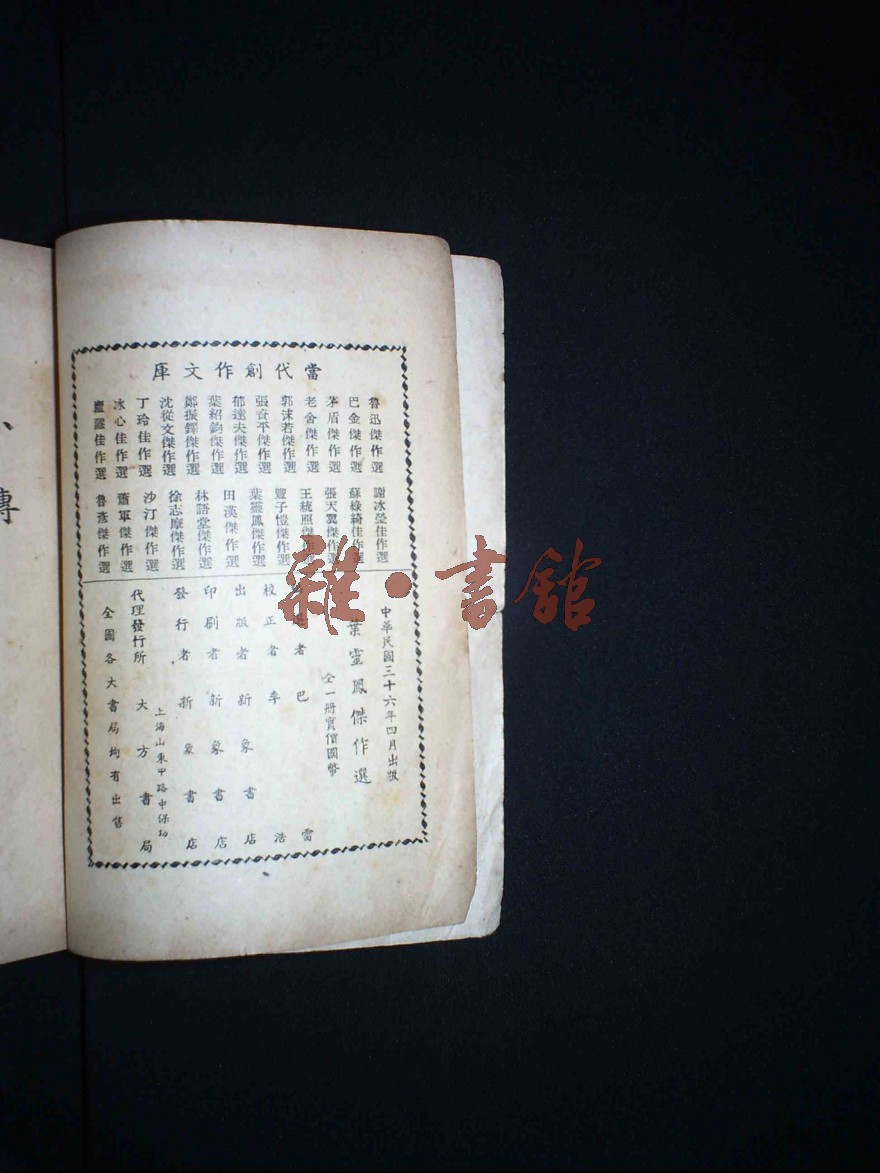 當代創作文庫
魯迅傑作選
巴金傑作選
茅盾傑作選
老舍傑作選
郭沫若傑作選
張資平傑作選
郁達夫傑作選
葉紹鈞傑作選
鄭振鐸傑作選
沈從文傑作選
丁玲佳作選
冰心佳作選
廬隱佳作選
謝冰瑩佳作選
蘇綠漪佳作選
張天翼傑作選
王統照傑作選
豐子愷傑作選
葉靈鳳傑作選
田漢傑作選
林語堂傑作選
徐志摩傑作選
沙汀傑作選
蕭軍傑作選
魯彥傑作選
中華民國三十六年四月出版
葉靈鳳傑作選
全一冊實價國幣
選者巴雷
校正者李浩
出版者新象書店
印刷者新象書店
發行者新象書店
上海山東中路中保坊
代理發行所大方書局
全國各大書局均有出售
傳
雜·書館